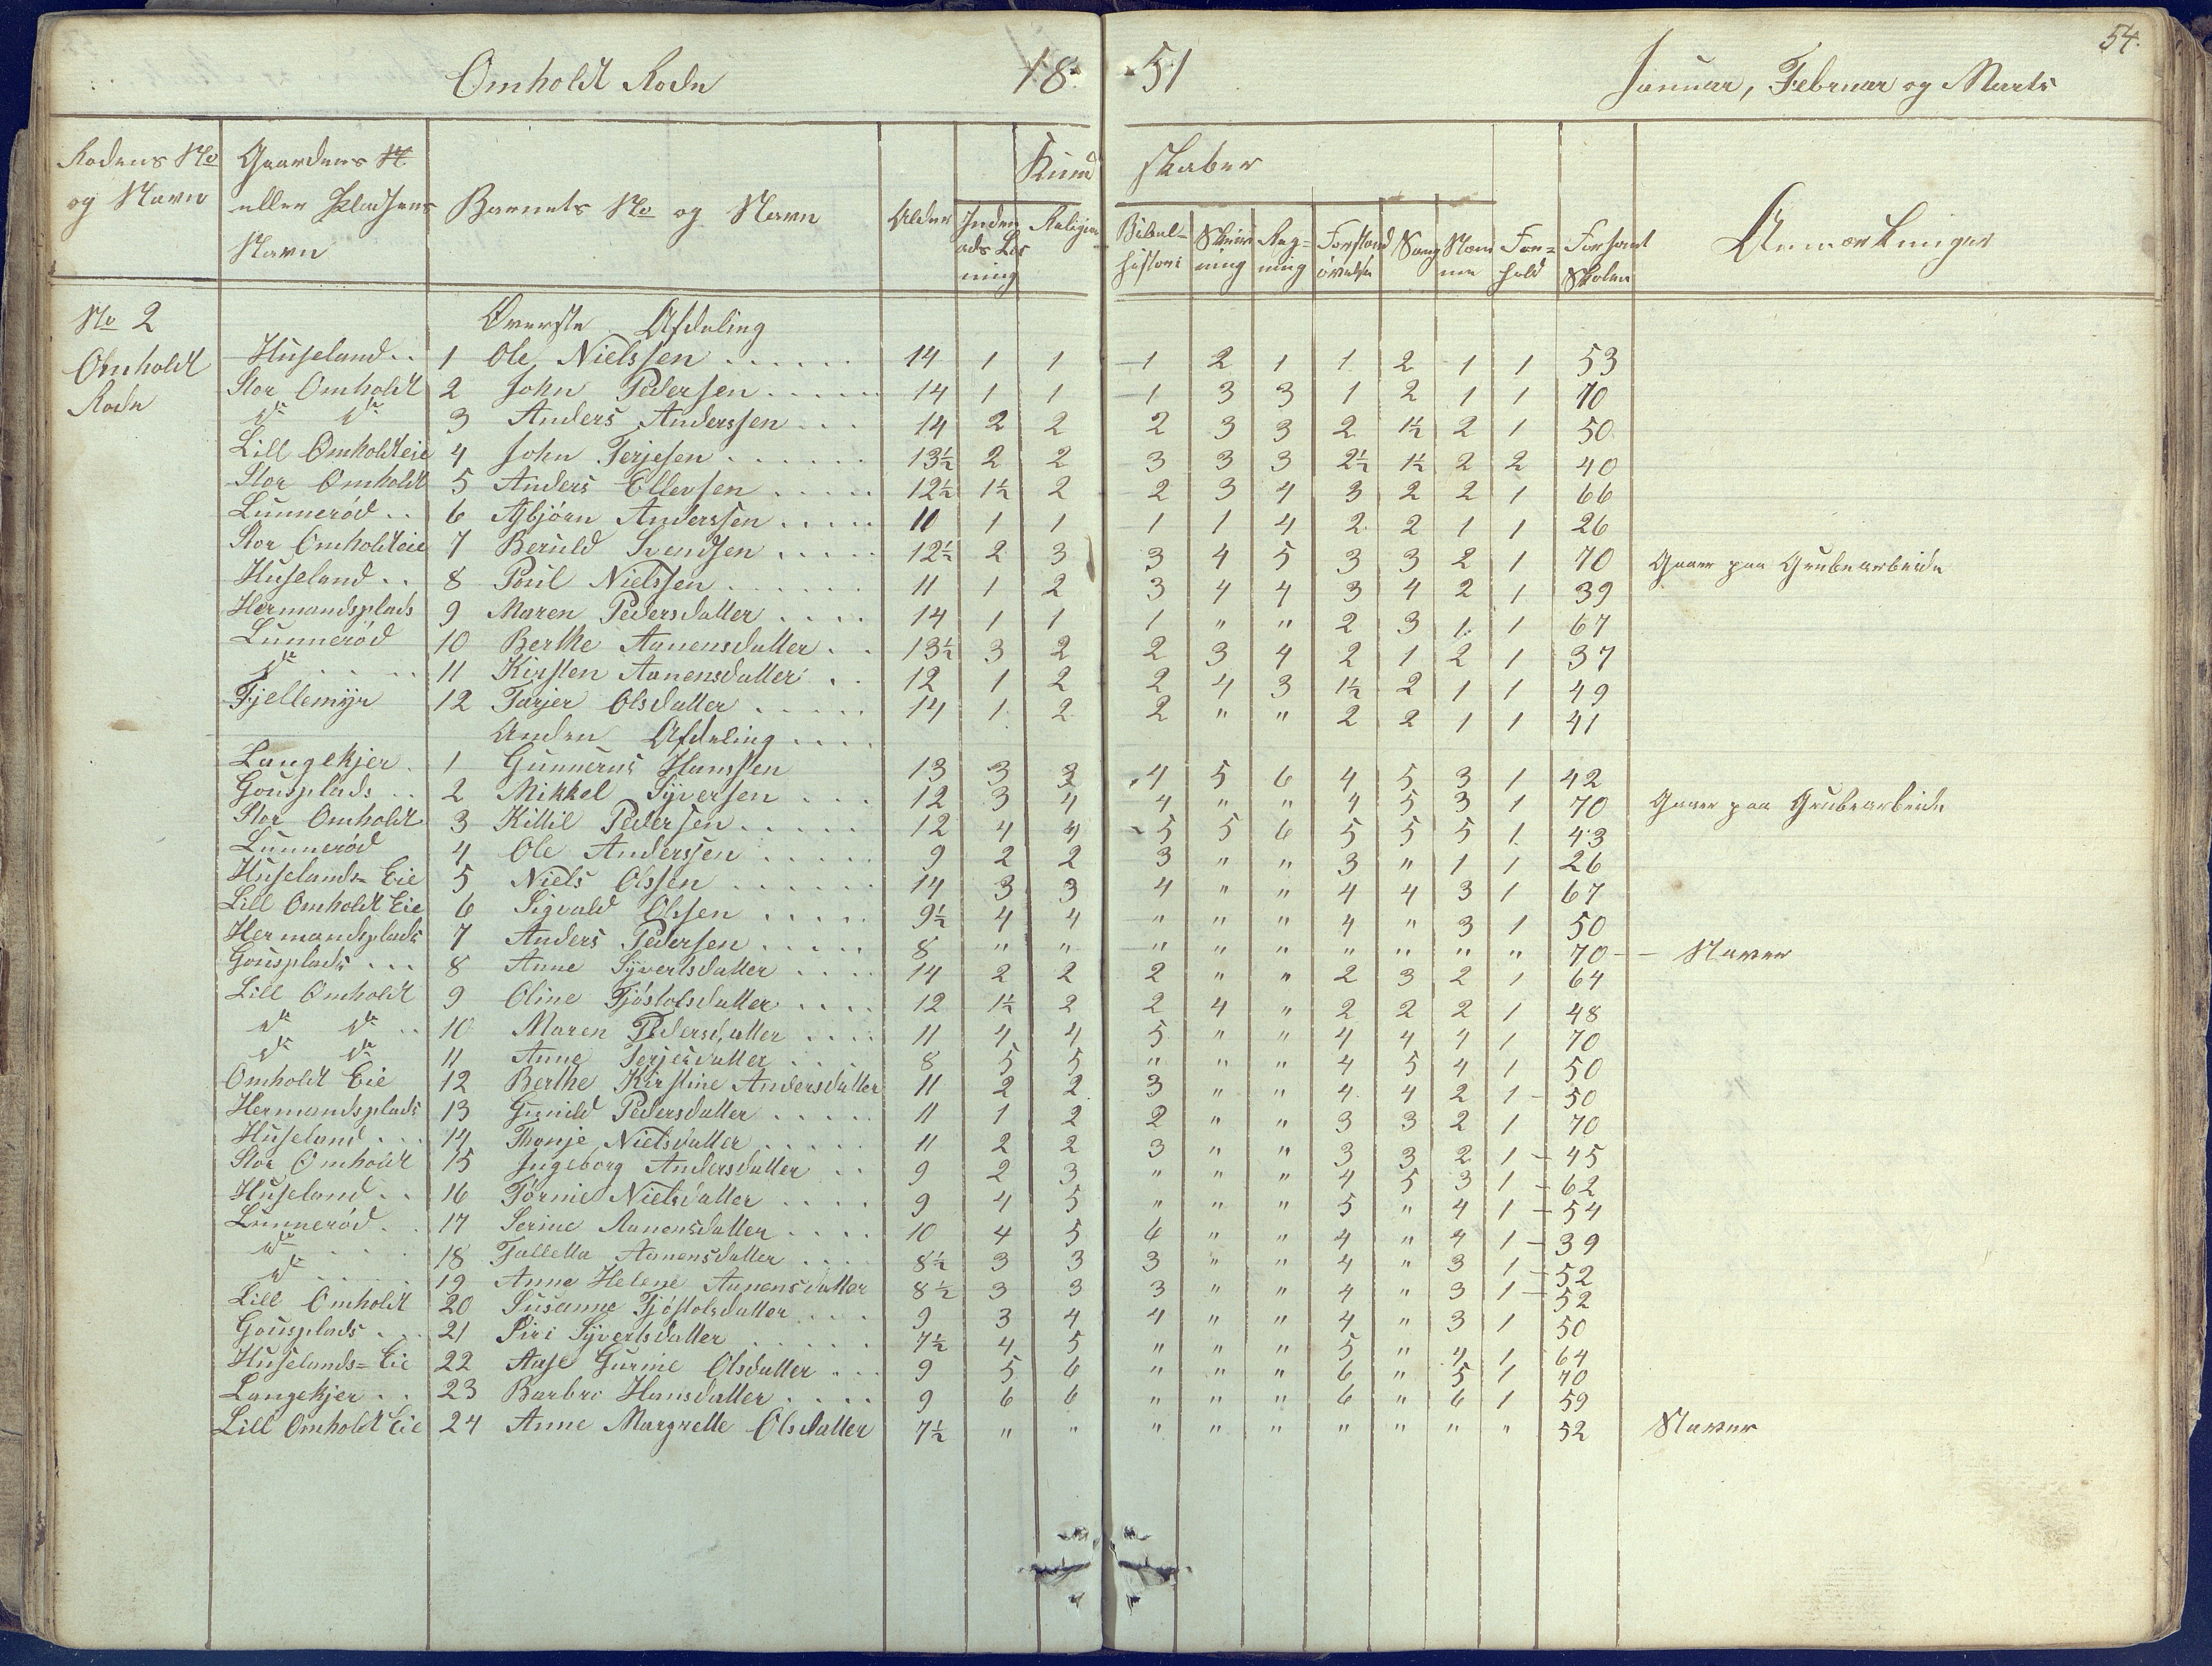 54.
Omholdt Rode 18 51 Januar, Februar og Marts
Rodens No og Navn Gaardens N. eller Pladsens Navn Barnets No og Navn Alder Kund skaber Inden ads Læs ning Religion Bibel= historie Skriv ning Reg= ning Forstand øvelse Sang Næm me For= hold Forsømt Skolen Anmærkninger
No 2 Omholdt Rode
Øverste Afdeling
Huseland . . 1 Ole Nielssen 14 1 1 1 2 1 1 2 1 1 53
Stor Omholdt 2 John Pedersen 14 1 1 1 3 3 1 2 1 1 70
do do 3 Anders Anderssen 14 2 2 2 3 3 2 1½ 2 1 50
Lill Omholdteie 4 John Terjesen 13½ 2 2 3 3 3 2½ 1½ 2 2 40
Stor Omholdt 5 Anders Ellevsen 12½ 1½ 2 2 3 4 3 2 2 1 66
Lunnerød . . 6 Asbjörn Anderssen 11 1 1 1 1 4 2 2 1 1 26
Stor Omholdteie 7 Beruld Svendsen 12½ 2 3 3 4 5 3 3 2 1 70 Gaaer paa Grubearbeide
Huseland . . 8 Poul Nielssen 11 1 2 3 4 4 3 4 2 1 39
Hermandsplads 9 Maren Pedersdatter 14 1 1 1 " " 2 3 1 1 67
Lunnerød 10 Berthe Aanensdatter 13½ 3 2 2 3 4 2 1 2 1 37
do 11 Kirsten Aanensdatter 12 1 2 2 4 3 1½ 2 1 1 49
Fjellemyr 12 Tarjer Olsdatter 14 1 2 2 " " 2 2 1 1 41
Anden Afdeling
Langekjer 1 Gunnerus Hanssen 13 3 3 4 5 6 4 5 3 1 42
Gousplads 2 Mikkel Syversen 12 3 4 4 " " 4 5 3 1 70 Gaaer paa Grubearbeide
Stor Omholdt 3 Killil Pedersen 12 4 4 5 5 6 5 5 5 1 43
Lunnerød 4 Ole Anderssen 9 2 2 3 " " 3 " 1 1 26
Huselands= Eie 5 Niels Olssen 14 3 3 4 " " 4 4 3 1 67
Lill Omholdt Eie 6 Sigvald Olssen 9½ 4 4 " " " 4 " 3 1 50
Hermandsplads 7 Anders Pedersen 8 " " " " " " " " " 70 Staver
Gousplads 8 Anne Syvertsdatter 14 2 2 2 " " 2 3 2 1 64
Lill Omholdt 9 Oline Tjöstolsdatter 12 1½ 2 2 4 " 2 2 2 1 48
do do 10 Maren Pedersdatter 11 4 4 5 " " 4 4 4 1 70
do do 11 Anne Terjesdatter 8 5 5 " " " 4 5 4 1 50
Omholdt Eie 12 Berthe Kirstine Andersdatter 11 2 2 3 " " 4 4 2 1 50
Hermandsplads 13 Gunild Pedersdatter 11 1 2 2 " " 3 3 2 1 70
Huseland 14 Thonje Nielsdatter 11 2 2 3 " " 3 3 2 1 45
Stor Omholdt 15 Ingeborg Andersdatter 9 2 3 " " " 4 5 3 1 62
Huseland 16 Törnie Nielsdatter 9 4 5 " " " 5 " 4 1 54
Lunnerød 17 Serine Aanensdatter 10 4 5 6 " " 4 " 4 1 39
do 18 Tallella Aanensdatter 8½ 3 3 3 " " 4 " 3 1 52
do 19 Anne Helene Aanensdatter 8½ 3 3 3 " " 4 " 3 1 52
Lill Omholdt 20 Susanne Tjöstolsdatter 9 3 4 4 " " 4 " 3 1 50
Gousplads 21 Siri Syvertsdatter 7½ 4 5 " " " 5 " 4 1 64
Huselands= Eie 22 Aase Gurine Olsdatter 9 5 6 " " " 6 " 5 1 70
Langekjer 23 Barbro Hansdatter 9 6 6 " " " 6 " 6 1 59
Lill Omholdt Eie 24 Anne Margrette Olsdatter 7½ " " " " " " " " " 52 Staver